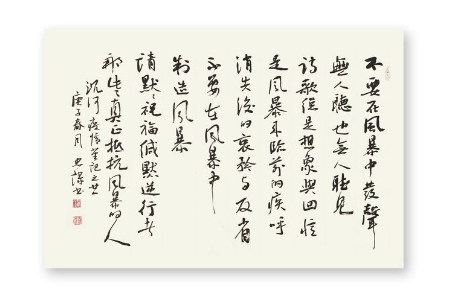 不要在風暴中發聲
無人聽也無人聽見
詩歌是想象與回憶
是風暴來臨前的疾呼
消失後的哀矜与反省
不要在風暴中
制造風暴
請默默祝福緘默逆行者
那些真正抵抗風暴的人
沉河 筆記之廿
庚子春月